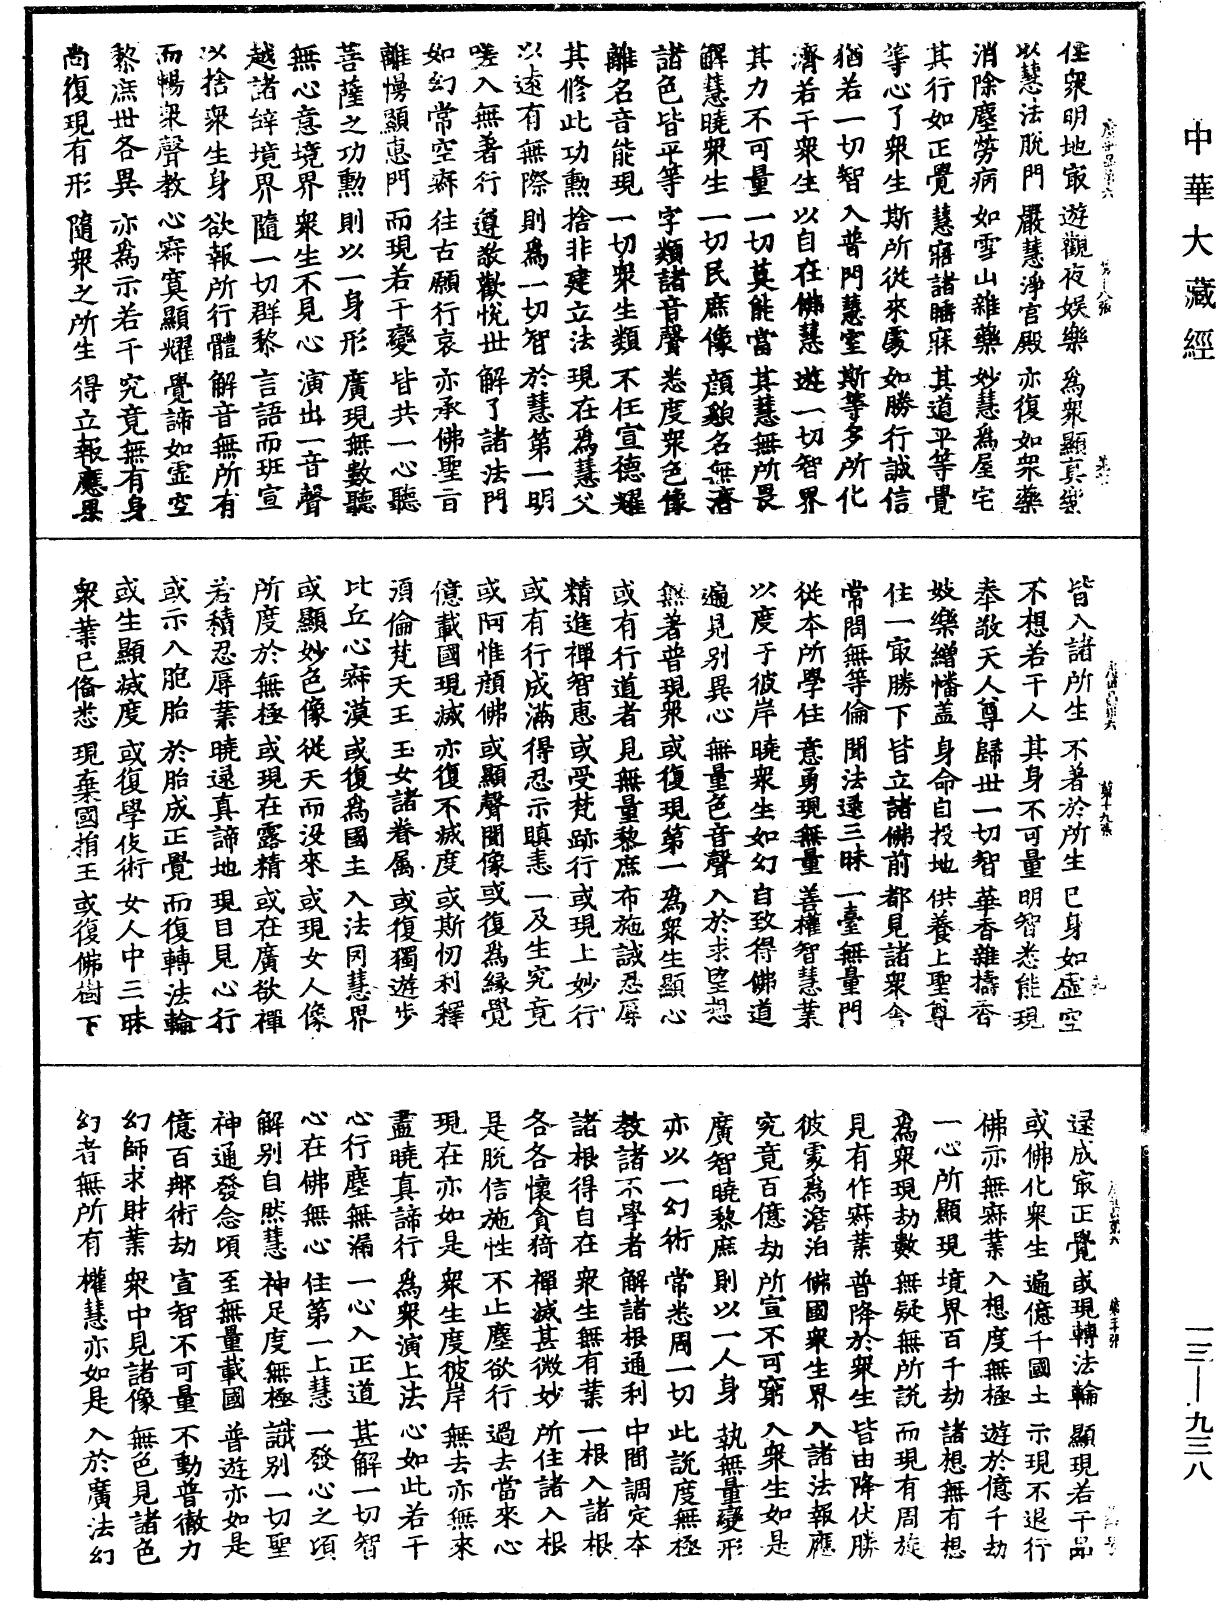 中華大藏經
住衆明地㝡　遊觀夜娛樂　為衆顯真樂
以慧法脫門　嚴慧淨宫殿　亦復如衆藥
消除塵勞病　如雪山雜藥　妙慧為屋宅
其行如正覺　慧寤諸睡寐　其道平等覺
等心了衆生　斯所從來處　如勝行誠信
猶若一切智　入普門慧室　斯等多所化
濟若干衆生　以自在佛慧　遊一切智界
其力不可量　一切莫能當　其慧無所畏
解慧曉衆生　一切民庶像　顏貌名無㴠
諸色皆平等　字類諸音聲　悉度衆色像
離名音能現　一切衆生類　不任宣德耀
其修此功勲　捨非建立法　現在為慧父
以遠有無際　則為一切智　於慧第一明
嗟入無著行　遵敬歡悦世　解了諸法門
如幻常空寂　往古願行哀　亦承佛聖旨
離慢顯惠門　而現若干變　皆共一心聽
菩薩之功勲　則以一身形　廣現無數聽
無心意境界　衆生不見心　演出一音聲
越諸辝境界　隨一切群黎　言語而班宣
以捨衆生身　欲報所行體　解音無所有
而暢衆聲教　心寂寞顯耀　覺諦如虛空
黎庶世各異　亦為示若干　究竟無有身
尚復現有形　隨衆之所生　得立報應果
皆入諸所生　不著於所生　已身如虛空
不想若干人　其身不可量　明智悉能現
奉敬天人尊　歸世一切智　華香雜擣香
妓樂繒幡盖　身命自投地　供養上聖尊
住一㝡勝下　皆立諸佛前　都見諸衆會
常問無等倫　聞法逮三昧　一臺無量門
從本所學住　意勇現無量　善權智慧業
以度于彼岸　曉衆生如幻　自致得佛道
遍見别異心　無量色音聲　入於求望想
無著普現衆　或復現第一　為衆生顯心
或有行道者　見無量黎庶　布施誠忍辱
精進禪智惠　或受梵跡行　或現上妙行
或有行成滿　得忍示瞋恚　一及生究竟
或阿惟顏佛　或顯聲聞像　或復為緣覺
億載國現滅　亦復不滅度　或斯忉利釋
須倫梵天王　玉女諸眷属　或復獨遊步
比丘心寂漠　或復為國主　入法同慧界
或顯妙色像　從天而没來　或現女人像
所度於無極　或現在露精　或在廣欲禪
若積忍辱業　曉遠真諦地　現目見心行
或示入胞胎　於胎成正覺　而復轉法輪
或生顯滅度　或復學伎術　女人中三昧
衆業已備悉　現棄國捐王　或復佛樹下
逮成㝡正覺　或現轉法輪　顯現若干品
或佛化衆生　遍億千國土　示現不退行
佛亦無寂業　入想度無極　遊於億千劫
一心所顯現　境界百千劫　諸想無有想
為衆現劫數　無疑無所説　而現有周旋
見有作寂業　普降於衆生　皆由降伏勝
彼處為澹泊　佛國衆生界　入諸法報應
究竟百億劫　所宣不可窮　入衆生如是
廣智曉黎庶　則以一人身　執無量變形
亦以一幻術　常悉周一切　此説度無極
教諸不學者　解諸根通利　中間調定本
諸根得自在　衆生無有業　一根入諸根
各各懷貪猗　禪滅甚微妙　所住諸入根
是脫信施性　不止塵欲行　過去當來心
現在亦如是　衆生度彼岸　無去亦無來
盡曉真諦行　為衆演上法　心如此若干
心行塵無漏　一心入正道　甚解一切智
心在佛無心　住第一上慧　一發心之頃
解别自然慧　神足度無極　識别一切聖
神通發念頃　至無量載國　普遊亦如是
億百那術劫　宣智不可量　不動普徹力
幻師求財業　衆中見諸像　無色見諸色
幻者無所有　權慧亦如是　入於廣法幻
一三—九三八